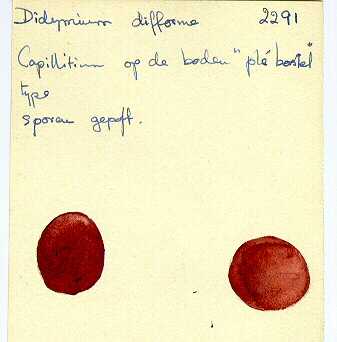 Didymium difforme 2291
Capillitium op de bodem "plé
type
sporen